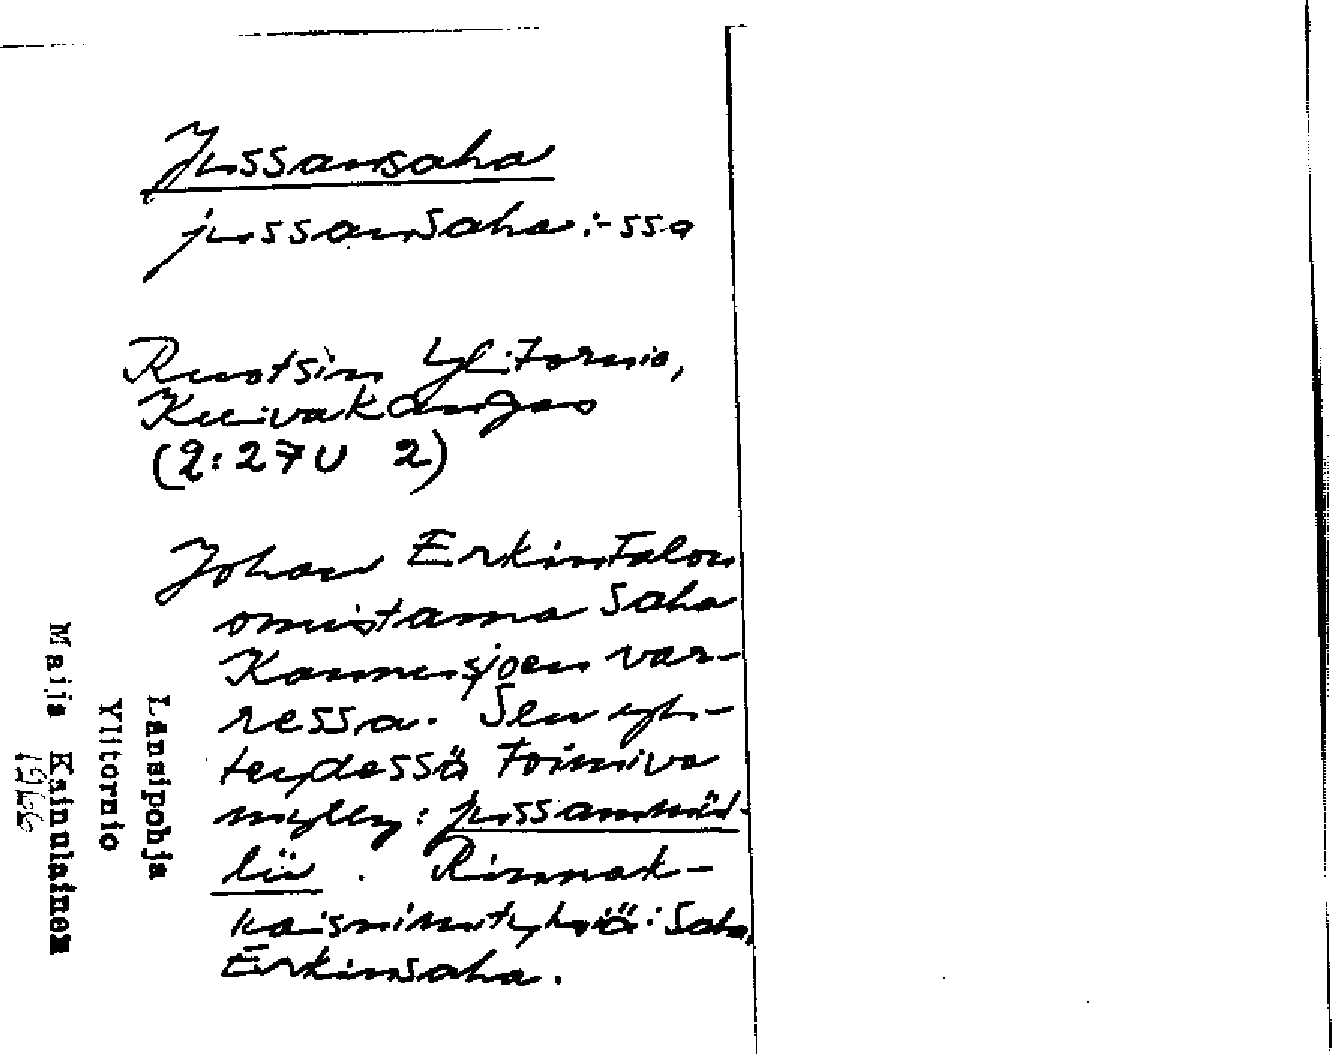 Jussansaha
jussansaha:-ssa
Ruotsin Ylitornio,
Kuivakangas
(2:27U 2)
Johan Erkintalon
omistama saha
Kannusjoen var-
ressa. Sen yh-
teydessä toimiva
mylly: jussanmül-
lü. Rinnak-
kaisnimityksiä: Saha,
Erkinsaha.
Länsipohja
Ylitornio
Maija Kainulainen
1966